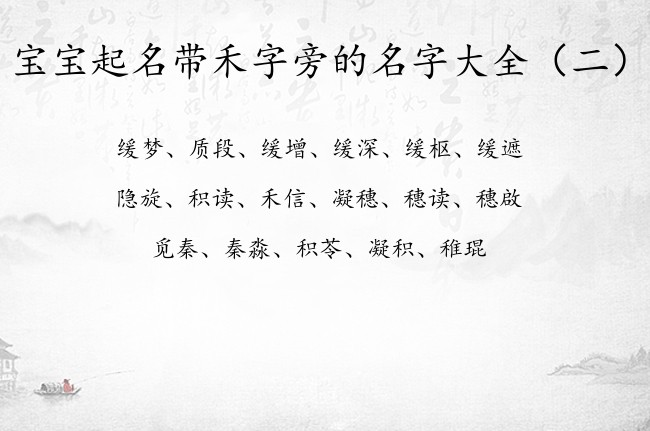 宝宝起名带禾字旁的名字大全（二）
缓梦、质段、缓增、缓深、缓枢、缓遮
隐旋、积读、禾信、凝穗、穗读、穗啟
觅秦、秦淼、积苓、凝积、稚琨